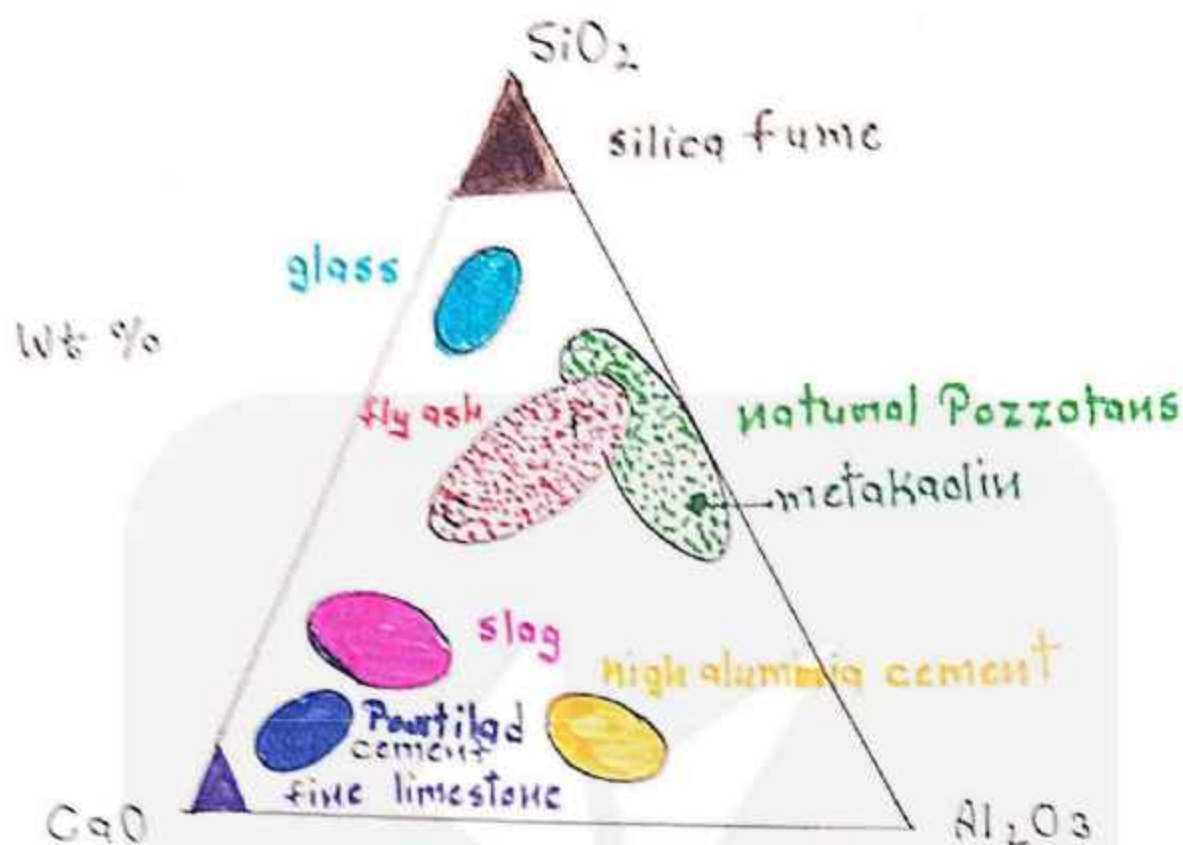 SiO₂
silica fume
glass
Wt %
fly ash
natural Pozzotans
metakaolin
slag
high alumimia cement
Poartilad
cement
fine limestone
CaO
Al₂O₃